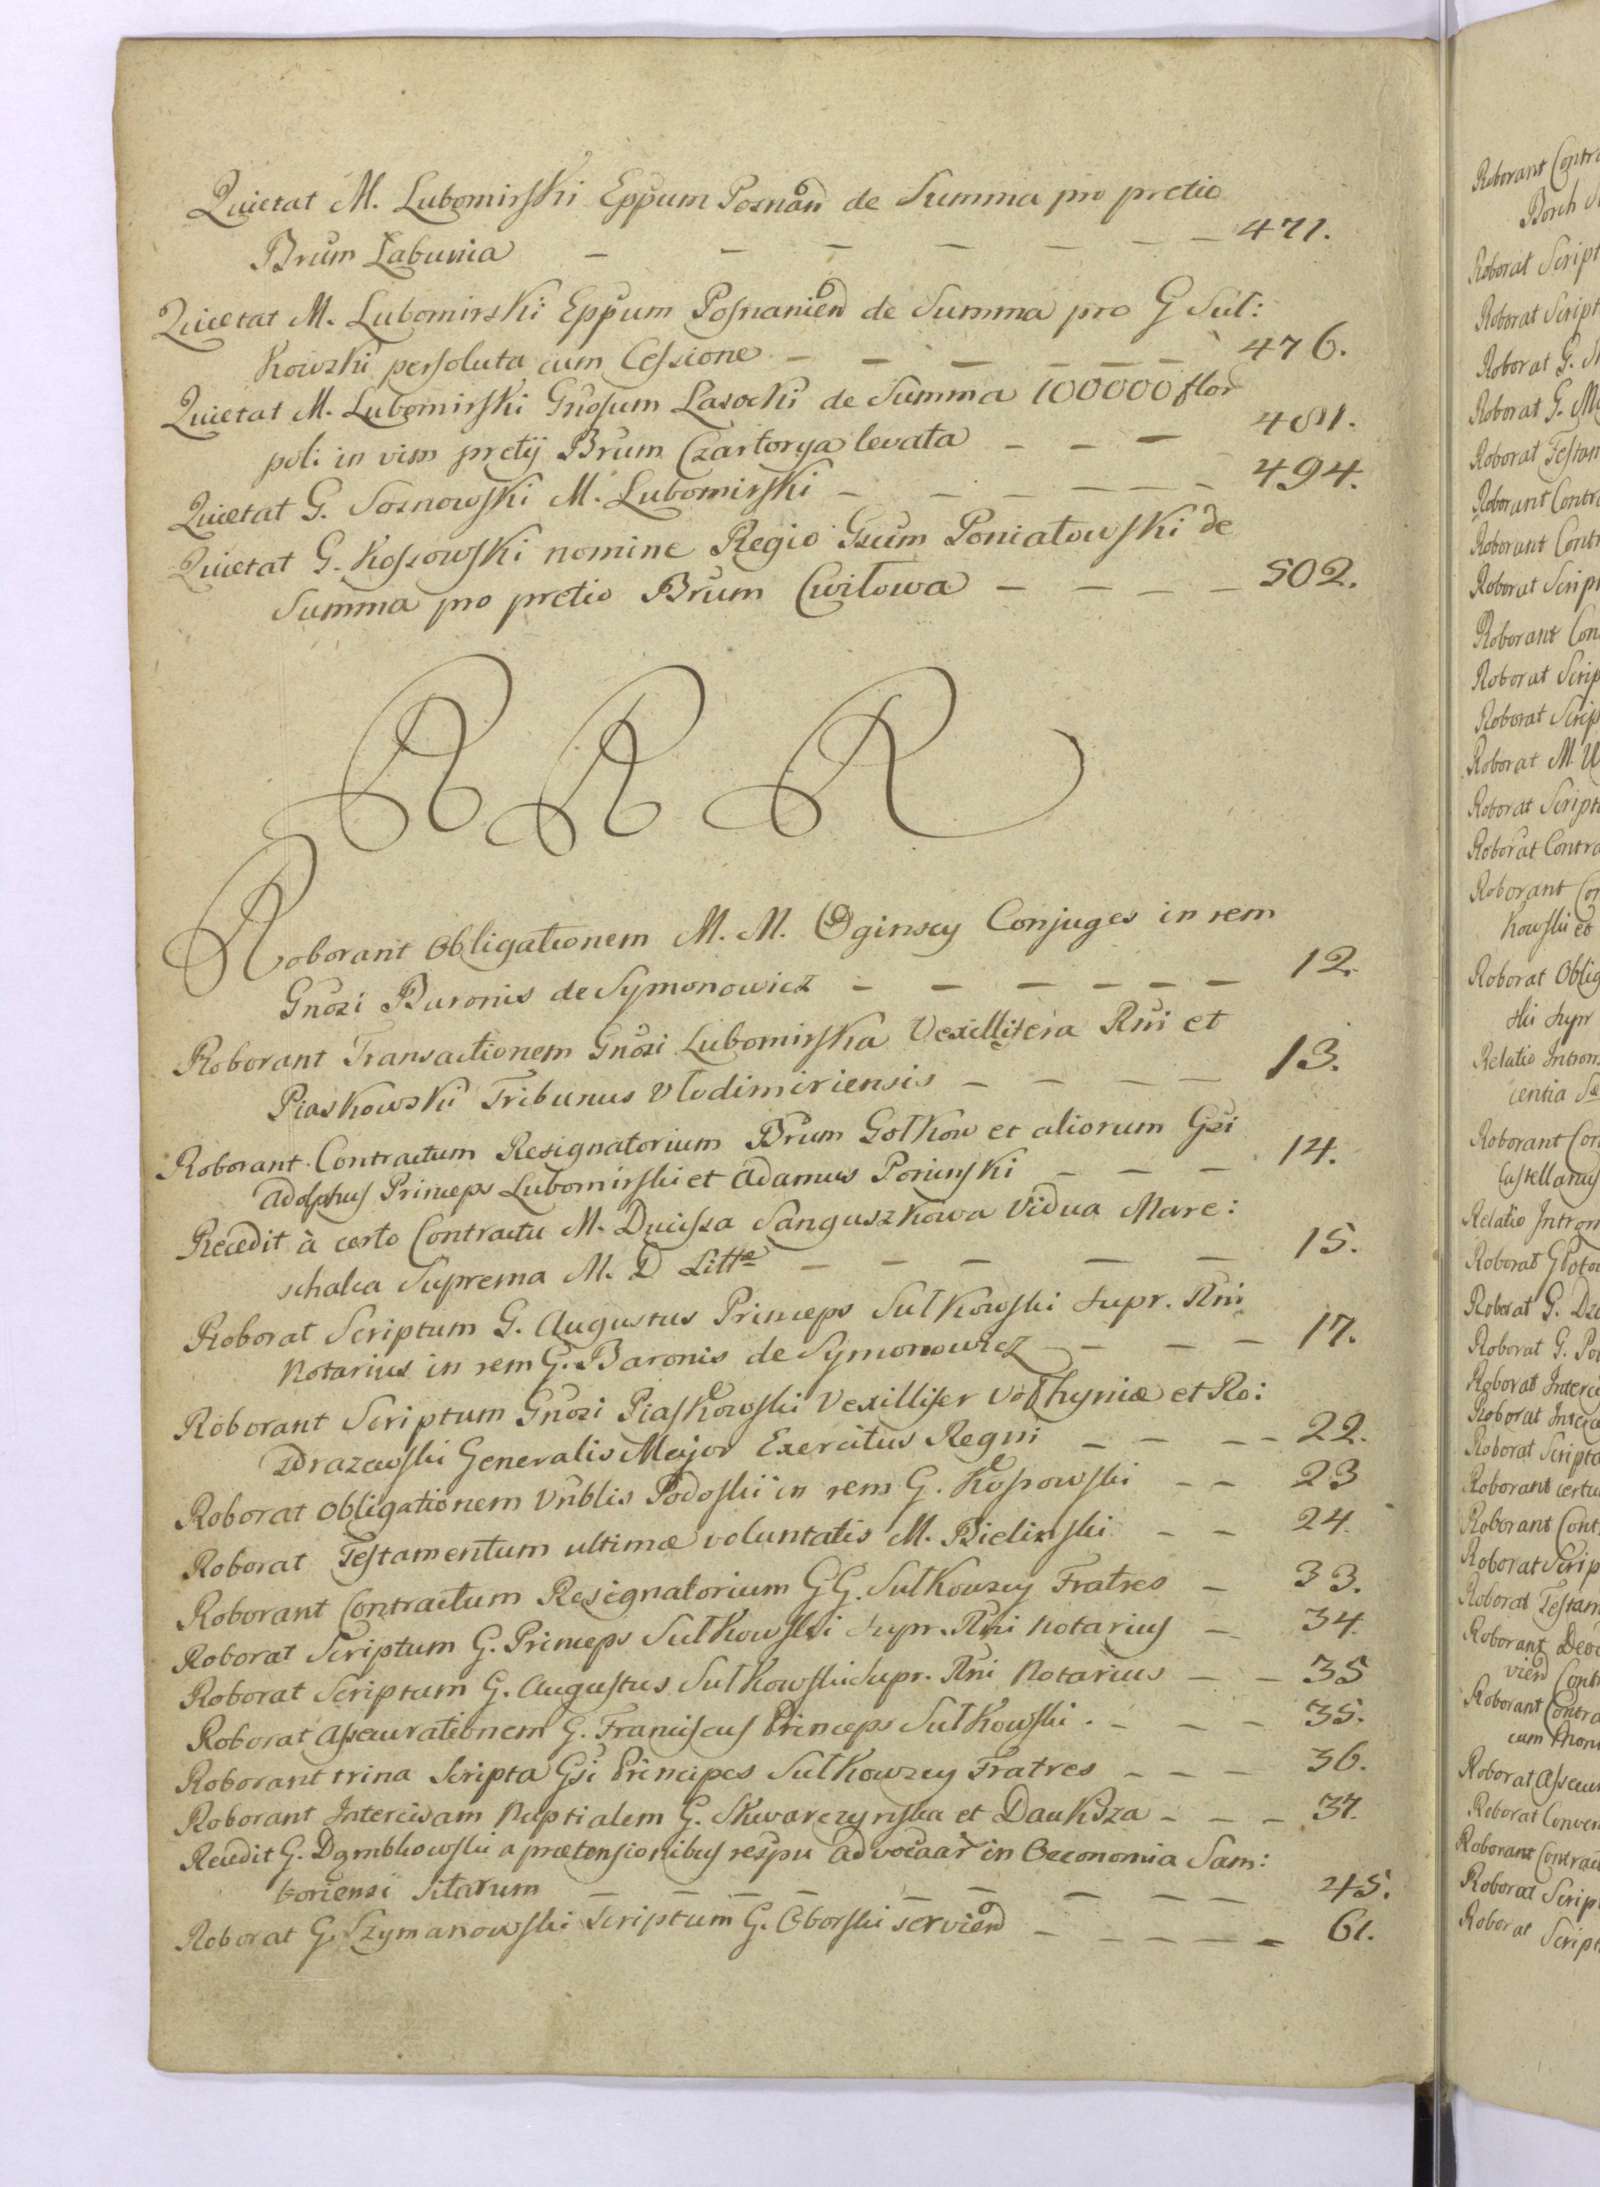 Quietat M. Lubomirski Eppum Posnan̄ de Summa pro pretio
Brum Łabunia — — — — — — — 471.
Quietat M. Lubomirski Eppum Posnanien̄ de Summa pro G Suł:
kowski persoluta cum Cessione — — — — — — 476.
Quietat M. Lubomirski Gnosum Lasocki de Summa 100000 flor
poli in vim pretij Brum Czartorya levata — — — 481.
Quietat G. Sosnowski M. Lubomirski — — — — — — 494.
Quietat G. Kossowski nomine Regio Gsum Poniatowski de
Summa pro pretio Brum Cwitowa — — — — 502.
R R R
Roborant Obligationem M. M. Oginscy Conjuges in rem
Gnosi Baronis de Symonowicz — — — — — — 12.
Roborant Transactionem Gnosi Lubomirska Vexillifera Rni et
Piaskowski Tribunus Vlodimiriensis — — — — 13.
Roborant Contractum Resignatorium Brum Gołkow et aliorum Gsi
Adolphus Princeps Lubomirski et Adamus Poninski — — — 14.
Recedit à certo Contractu M. Ducissa Sanguszkowa Vidua Mare:
schalca Suprema M. D Littæ — — — — — 15.
Roborat Scriptum G. Augustus Princeps Sułkowski Supr. Rni
Notarius in rem G. Baronis de Symonowicz — — — 17.
Roborant Scriptum Gnosi Piaskowski Vexillifer Vołhyniæ et Ro:
zdrazewski Generalis Major Exercitus Regni — — — — 22.
Roborat Obligationem Vrblis Podoski in rem G. Kossowski — — 23
Roborat Testamentum ultimæ voluntatis M. Bielinski — — 24.
Roborant Contractum Resignatorium GG. Sułkowscy Fratres — 33.
Roborat Scriptum G. Princeps Sułkowski Supr. Rni Notarius — 34.
Roborat Scriptum G. Augustus Sułkowski Supr. Rni Notarius — — 35
Roborat Assecurationem G. Franciscus Princeps Sułkowski. — — — 35.
Roborant trina Scripta Gsi Principes Sułkowscy Fratres — — — 36.
Roborant Intercisam Nuptialem G. Skwarczynska et Dauksza — — — 37.
Recedit G. Dąmbkowski a prætensionibus respu advocaar in Oeconomia Sam:
boriensi sitarum — — — — — — — — — 45.
Roborat G. Szymanowski Scriptum G. Oborski servien̄ — — — — — 61.
Roborant Contra
Borch
Roborat Script
Roborat Script
Roborat G.
Roborat G.
Roborat Testam
Roborant Contra
Roborant Contr
Roborat Script
Roborant Con
Roborat Scrip
Roborat Scrip
Roborat M
Roborat Script
Roborat Contra
Roborant Con
kowski et
Roborat Oblig
ski Supr
Relatio Introm
centia
Roborant Con
Castellanus
Relatio Introm
Roborat G Potoc
Roborat G. Dza
Roborat G. Po
Roborat Interci
Roborat Interci
Roborat Scripta
Roborant certu
Roborant Cont
Roborat Scrip
Roborat Testam
Roborant
vien̄ Cont
Roborant Contra
cum
Roborat Assecu
Roborat Conven
Roborant Contrac
Roborat Scrip
Roborat Script